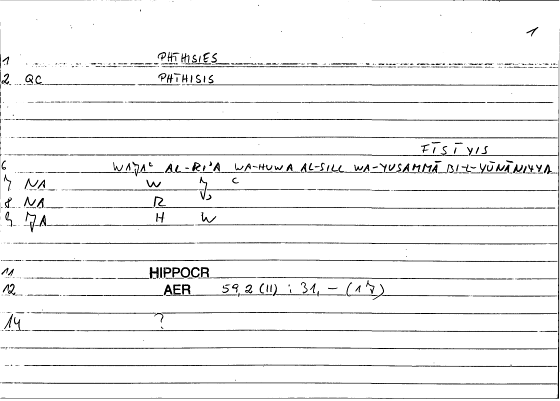 1
1 PHTHISIES
2 QC PHTHISIS
FĪSĪYIS
6 WAǦAʿ AL-RIʾA WA-HUWA AL-SILL WA-YUSAMMĀ BI-L-YŪNĀNIYYA
7 NA W Ǧ C
8 NA R
9 ǦA H W
11 HIPPOCR
12 AER 59,2 (11) : 31, – (17)
14 ?